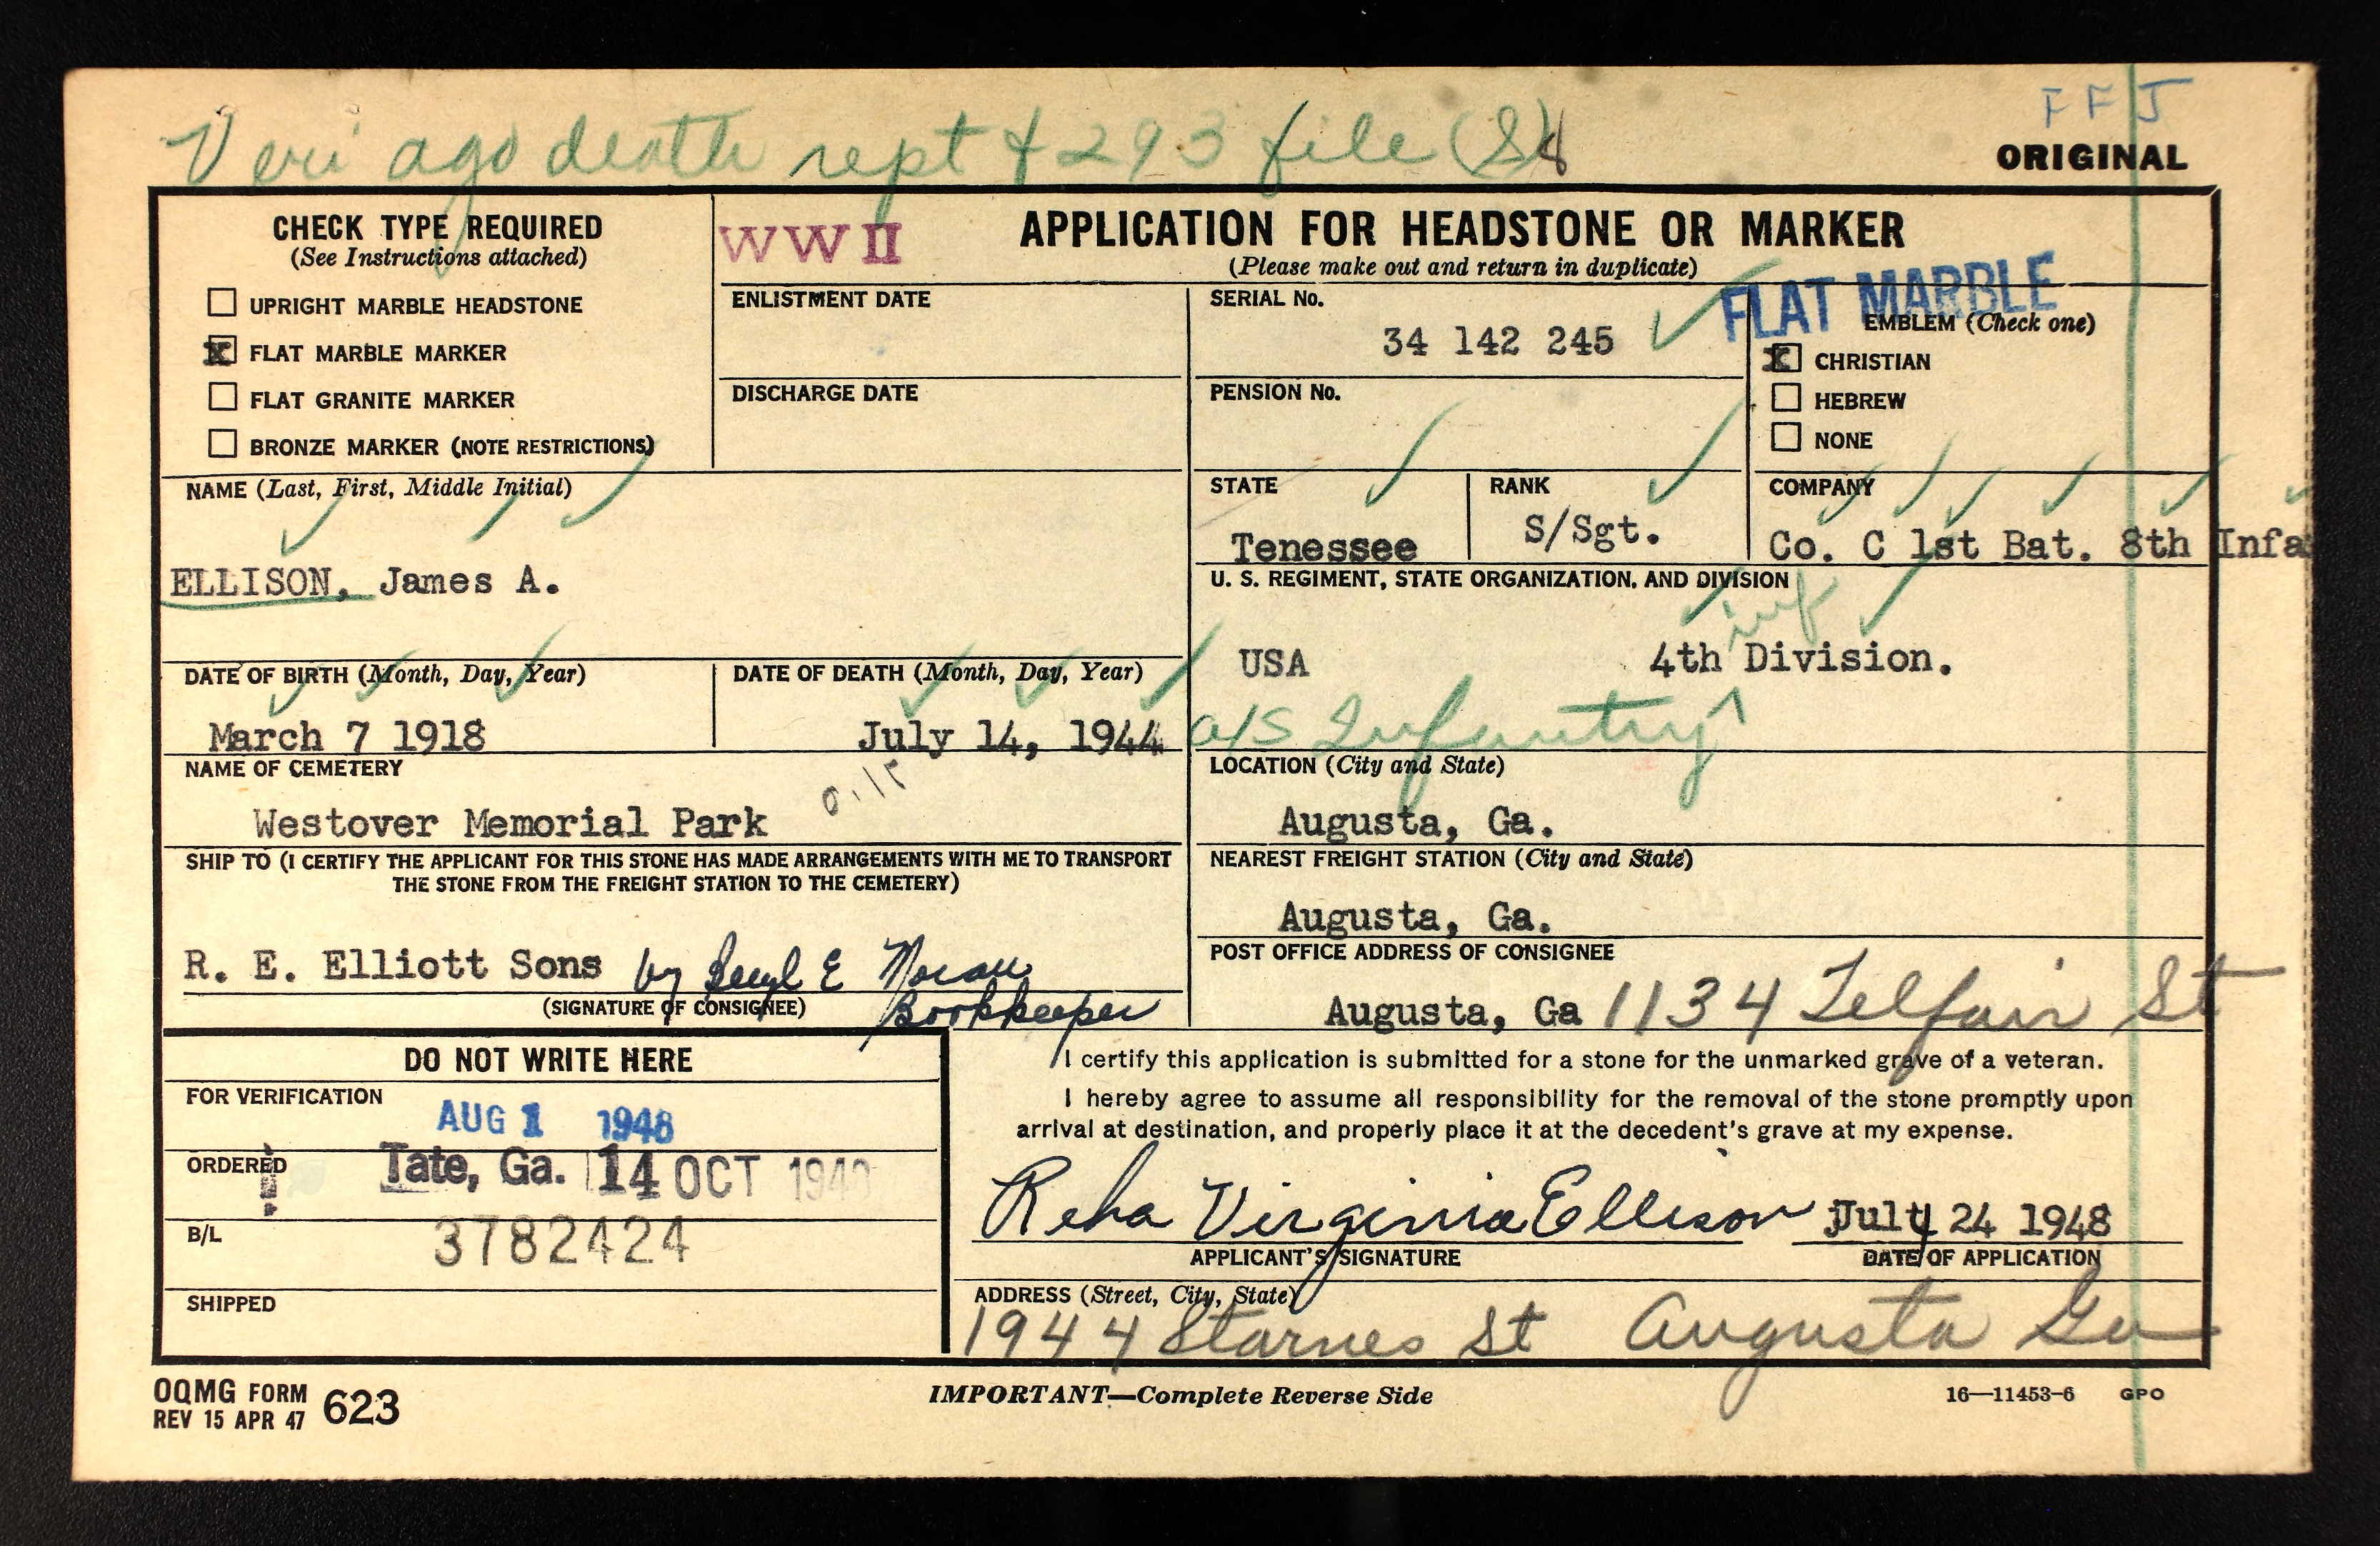 FFJ
Veri ago death rept & 293 file (S)
ORIGINAL
CHECK TYPE REQUIRED
(See Instructions attached)
UPRIGHT MARBLE HEADSTONE
X FLAT MARBLE MARKER
FLAT GRANITE MARKER
BRONZE MARKER (NOTE RESTRICTIONS)
WW II
APPLICATION FOR HEADSTONE OR MARKER
(Please make out and return in duplicate)
ENLISTMENT DATE
DISCHARGE DATE
SERIAL No.
34 142 245
PENSION No.
FLAT MARBLE
EMBLEM (Check one)
X CHRISTIAN
HEBREW
NONE
NAME (Last, First, Middle Initial)
ELLISON, James A.
STATE
Tenessee
RANK
S/Sgt.
COMPANY
Co. C 1st Bat. 8th Infa
U. S. REGIMENT, STATE ORGANIZATION, AND DIVISION
inf
USA 4th Division.
a/s Infantry
DATE OF BIRTH (Month, Day, Year)
March 7 1918
DATE OF DEATH (Month, Day, Year)
July 14, 1944
NAME OF CEMETERY
Westover Memorial Park
LOCATION (City and State)
Augusta, Ga.
SHIP TO (I CERTIFY THE APPLICANT FOR THIS STONE HAS MADE ARRANGEMENTS WITH ME TO TRANSPORT
THE STONE FROM THE FREIGHT STATION TO THE CEMETERY)
R. E. Elliott Sons by Beryl E Moran
Bookkeeper
(SIGNATURE OF CONSIGNEE)
NEAREST FREIGHT STATION (City and State)
Augusta, Ga.
POST OFFICE ADDRESS OF CONSIGNEE
Augusta, Ga 1134 Telfair St
DO NOT WRITE HERE
FOR VERIFICATION
AUG 1 1948
ORDERED
Tate, Ga. 14 OCT 1948
B/L
3782424
SHIPPED
I certify this application is submitted for a stone for the unmarked grave of a veteran.
I hereby agree to assume all responsibility for the removal of the stone promptly upon
arrival at destination, and properly place it at the decedent's grave at my expense.
Reba Virginia Ellison July 24 1948
APPLICANT'S SIGNATURE
DATE OF APPLICATION
ADDRESS (Street, City, State)
1944 Starnes St Augusta Ga
OQMG FORM 623
REV 15 APR 47
IMPORTANT—Complete Reverse Side
16—11453-6 GPO